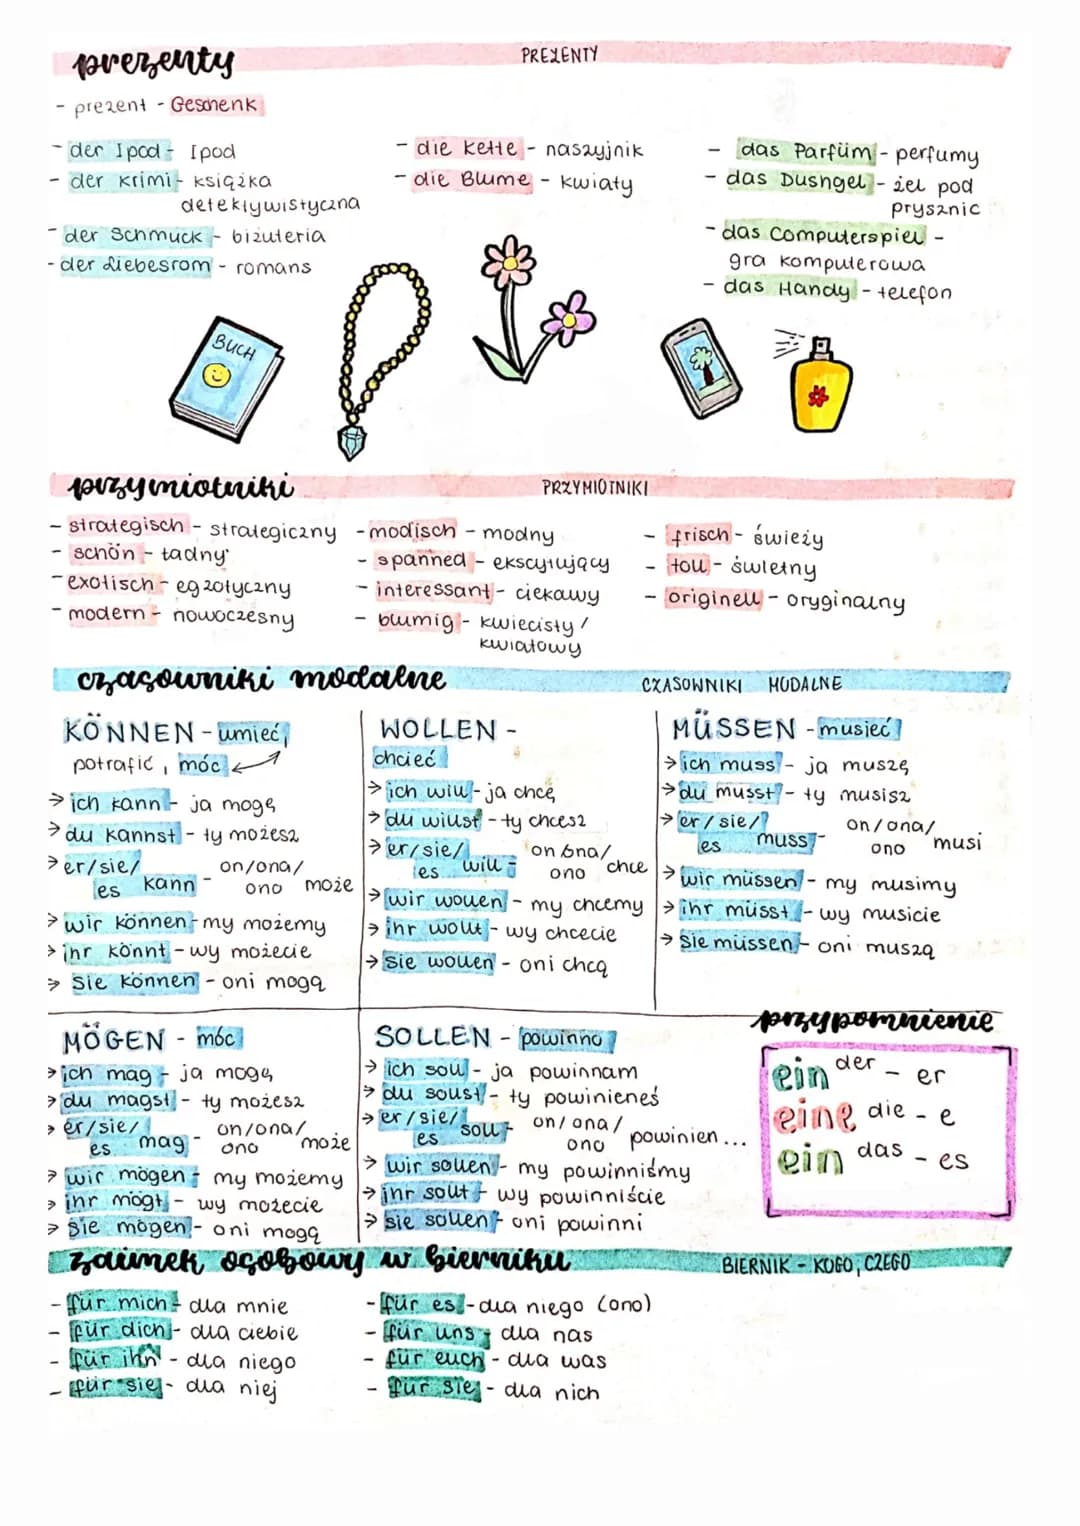 prezenty
PREZENTY
- prezent - Geschenk
- der Ipod - Ipod
- der Krimi - książka
detektywistyczna
- der Schmuck - biżuteria
- der Liebesrom - romans
- die Kette - naszyjnik
- die Blume - kwiaty
- das Parfüm - perfumy
- das Dushgel - żel pod
prysznic
- das Computerspiel -
gra komputerowa
- das Handy - telefon
BUCH
przymiotniki
PRZYMIOTNIKI
- strategisch - strategiczny
- schön - ładny
- exotisch - egzotyczny
- modern - nowoczesny
- modisch - modny
- spanned - ekscytujący
- interessant - ciekawy
- blumig - kwiecisty /
kwiatowy
- frisch - świeży
- toll - świetny
- originell - oryginalny
czasowniki modalne
CZASOWNIKI MODALNE
KÖNNEN - umieć,
potrafić, móc
→ ich kann - ja mogę
→ du kannst - ty możesz
→ er/sie/ on/ona/
es kann - ono może
→ wir können - my możemy
→ ihr könnt - wy możecie
→ Sie können - oni mogą
WOLLEN -
chcieć
→ ich will - ja chcę
→ du willst - ty chcesz
→ er/sie/ on/ona/
es will - ono chce
→ wir wollen - my chcemy
→ ihr wollt - wy chcecie
→ Sie wollen - oni chcą
MÜSSEN - musieć
→ ich muss - ja muszę
→ du musst - ty musisz
→ er/sie/ on/ona/
es muss - ono musi
→ wir müssen - my musimy
→ ihr müsst - wy musicie
→ Sie müssen - oni muszą
MÖGEN - móc
→ ich mag - ja mogę
→ du magst - ty możesz
→ er/sie/ on/ona/
es mag - ono może
→ wir mögen - my możemy
→ ihr mögt - wy możecie
→ Sie mögen - oni mogą
SOLLEN - powinno
→ ich soll - ja powinnam
→ du sollst - ty powinieneś
→ er/sie/ on/ona/
es soll - ono powinien...
→ wir sollen - my powinniśmy
→ ihr sollt - wy powinniście
→ sie sollen - oni powinni
przypomnienie
ein der - er
eine die - e
ein das - es
zaimek osobowy w bierniku
BIERNIK - KOGO, CZEGO
- für mich - dla mnie
- für dich - dla ciebie
- für ihn - dla niego
- für sie - dla niej
- für es - dla niego (ono)
- für uns - dla nas
- für euch - dla was
- für sie - dla nich